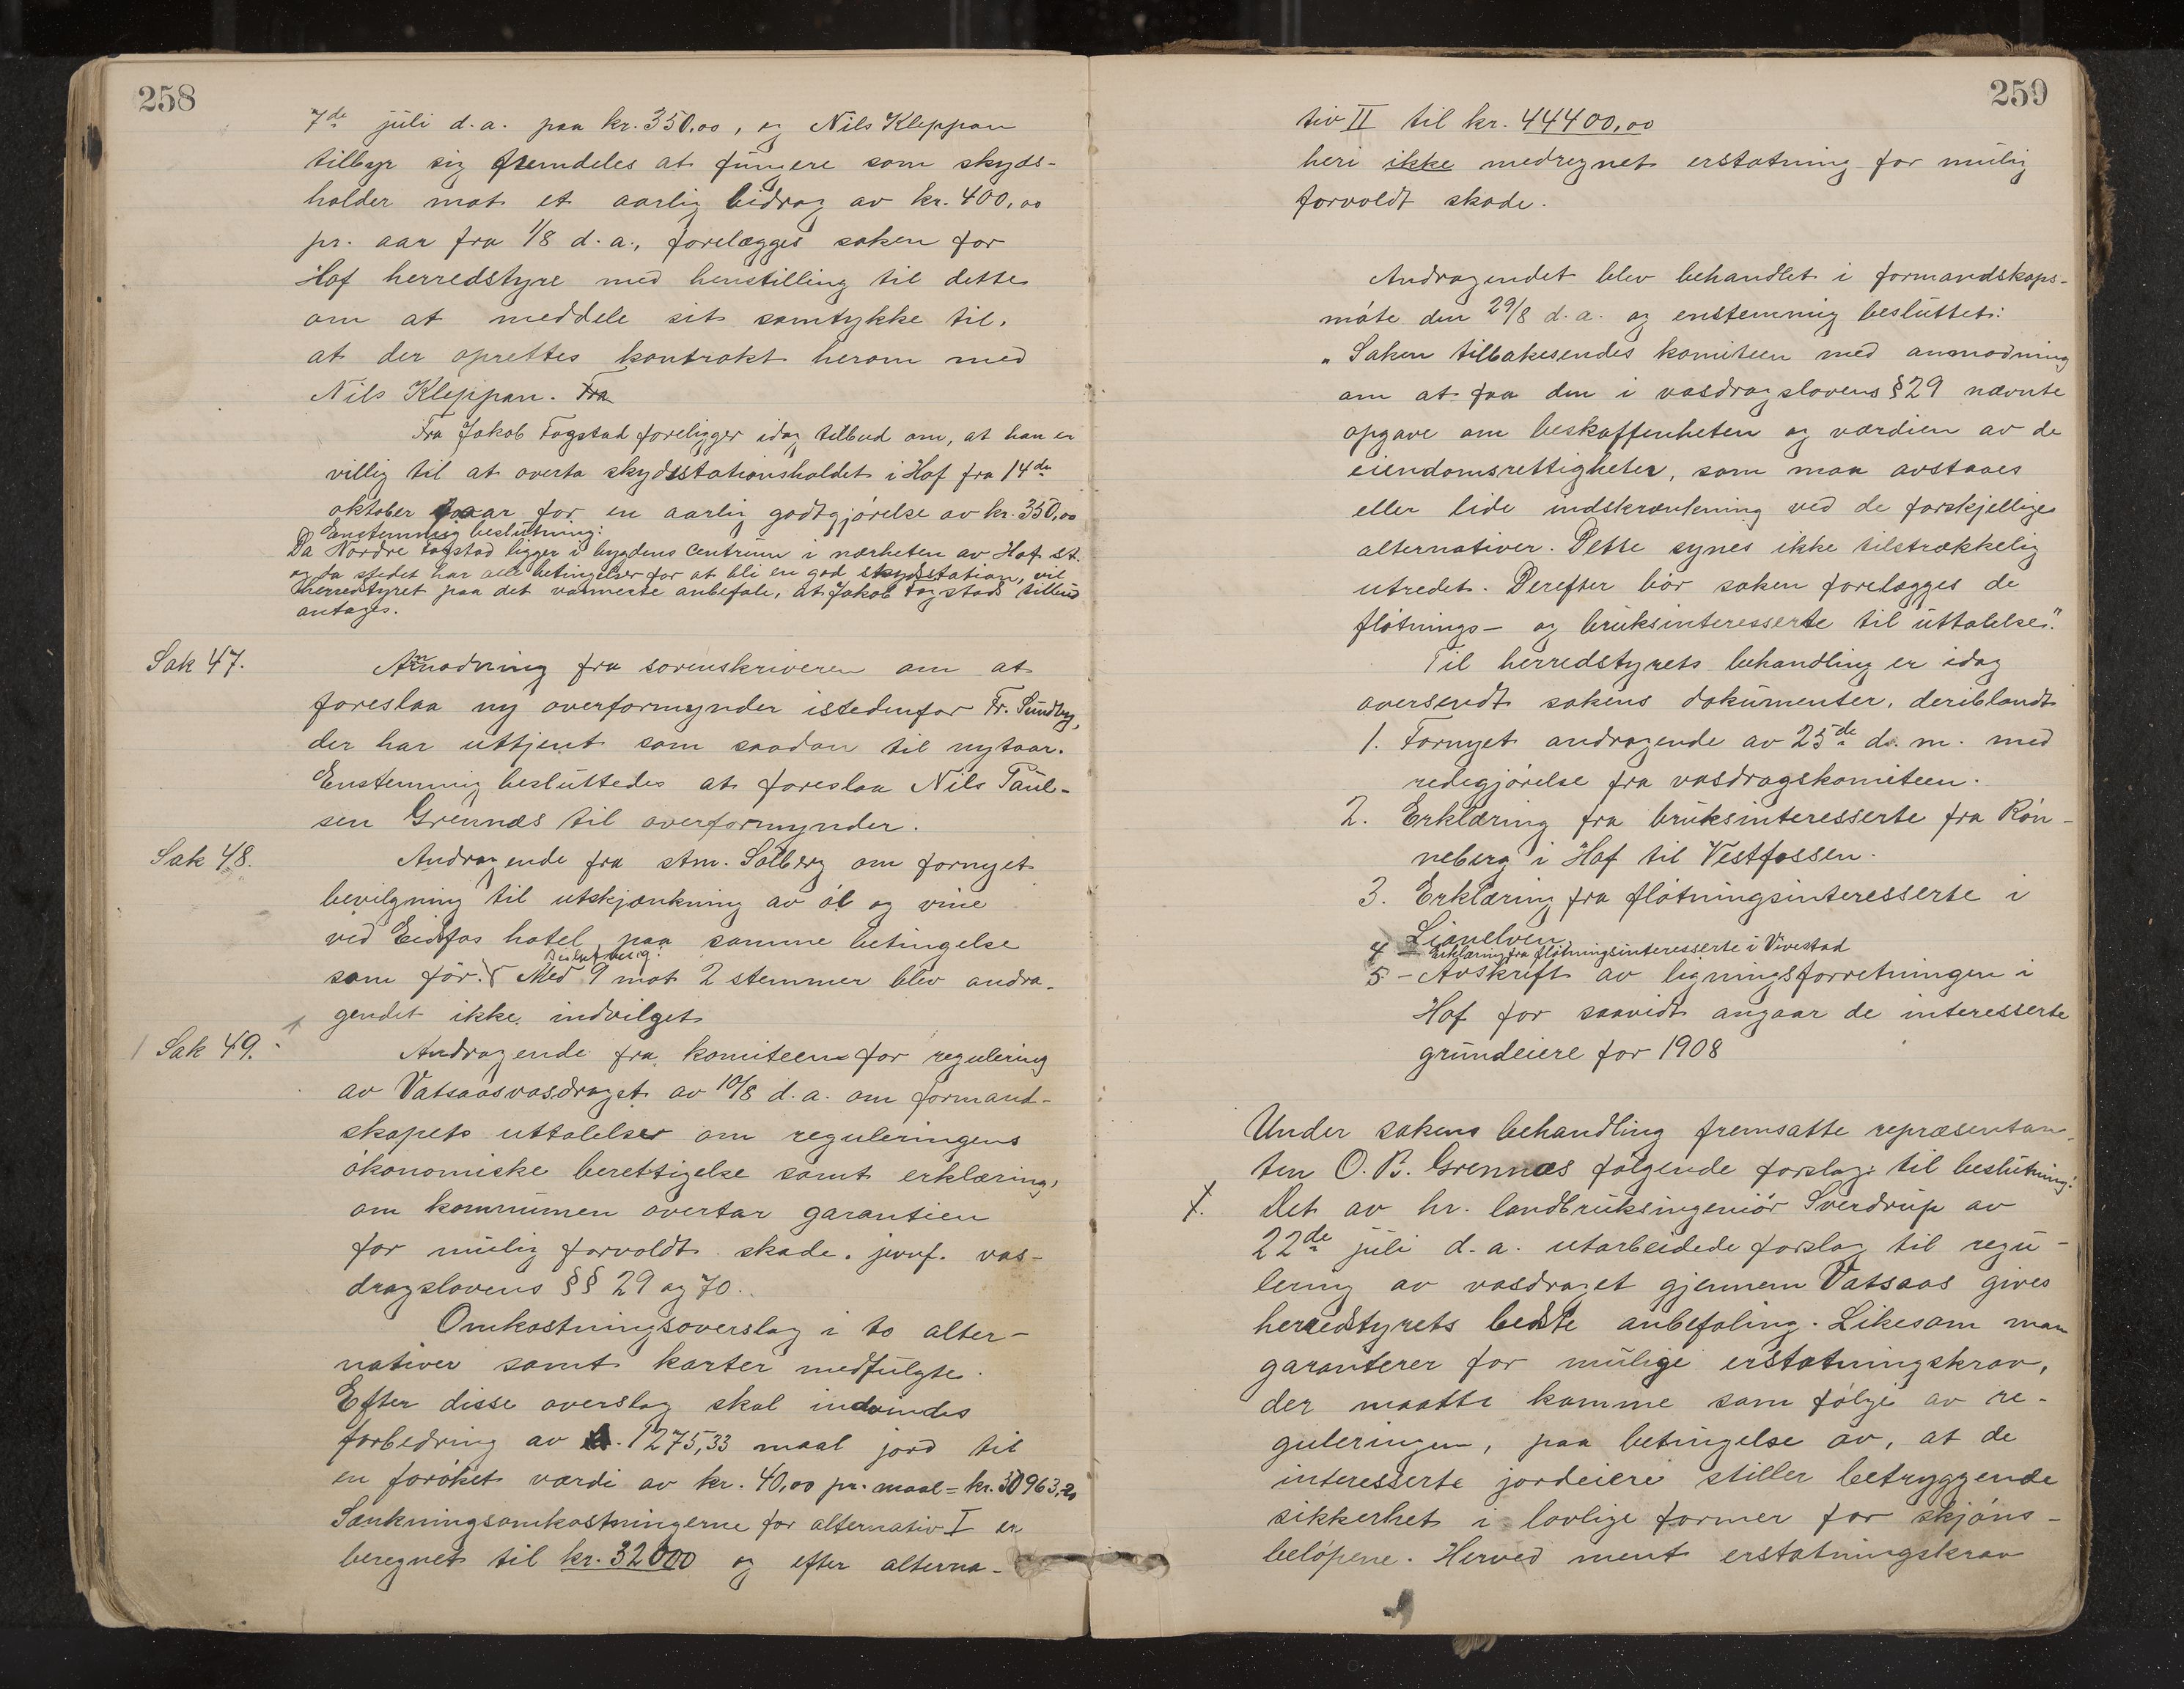 258
7de juli d.a. paa kr. 350,00, og Nils Kleppan
tilbyr sig fremdeles at fungere som skyds-
holder mot et aarlig bidrag av kr. 400,00
pr. aar fra 1/8 d.a., forelægges saken for
Hof herredstyre med henstilling til dette
om at meddele sit samtykke til,
at der oprettes kontrakt herom med
Nils Kleppan. Fra
Fra Jakob Fogstad foreligger idag tilbud om, at han er
villig til at overta skydsstationsholdet i Hof fra 14de
oktober for en aarlig godtgjörelse av kr. 350,00
Enstemmig beslutning:
Da Nordre Fogstad ligger i bygdens centrum i nærheten av Hof st.
og da stedet har alle betingelser for at bli en god skydsstation, vil
herredstyret paa det varmeste anbefale, at Jakob Fogstads tilbud
antages.
Sak 47.
Anmodning fra sorenskriveren om at
foreslaa ny overformynder istedenfor Fr. Sundby,
der har uttjent som saadan til nytaar.
Enstemmig besluttedes at foreslaa Nils Paul-
sen Grennæs til overformynder.
Sak 48.
Andragende fra stm. Solberg om fornyet
bevilgning til utskjænkning av öl og vine
ved Eidsfos hotel paa samme betingelse
Beslutning:
som för. Med 9 mot 2 stemmer blev andra-
gendet ikke indvilget
Sak 49.
Andragende fra komiteen for regulering
av Vatsaasvasdraget av 10/8 d.a. om formand-
skapets uttalelser om reguleringens
ökonomiske berettigelse samt erklæring,
om kommunen overtar garantien
for mulig forvoldt skade. jevnf. vas-
dragslovens §§ 29 og 70.
Omkostningsoverslag i to alter-
nativer samt karter medfulgte.
Efter disse overslag skal indvindes
forbedring av 1275,33 maal jord til
en foröket værdi av kr. 40,00 pr. maal = kr. 30963,20
Sænkningsomkostningerne for alternativ I er
beregnet til kr. 32000 og efter alterna-
259
tiv II til kr. 44400,00
heri ikke medregnet erstatning for mulig
forvoldt skade.
Andragendet blev behandlet i formandskaps-
möte den 29/8 d.a. og enstemmig besluttet:
"Saken tilbakesendes komiteen med anmodning
om at faa den i vasdragslovens § 29 nævnte
opgave om beskaffenheten og værdien av de
eiendomsrettigheter, som maa avstaaes
eller lide indskrænkning ved de forskjellige
alternativer. Dette synes ikke tilstrækkelig
utredet. Derefter bör saken forelægges de
flötnings- og bruksinteresserte til uttalelse."
Til herredstyrets behandling er idag
oversendt sakens dokumenter, deriblandt
1. Fornyet andragende av 25de d.m. med
redegjörelse fra vasdragskomiteen.
2. Erklæring fra bruksinteresserte fra Rön-
neberg i Hof til Vestfossen.
3. Erklæring fra flötningsinteresserte i
Lianelven
4 - Erklæring fra flötningsinteresserte i Vivestad
5 - Avskrift av ligningsforretningen i
Hof for saavidt angaar de interesserte
grundeiere for 1908
Under sakens behandling fremsatte repræsentan-
ten O. B. Grennæs fölgende forslag til beslutning:
1. Det av hr. landbruksingeniör Sverdrup av
22de juli d.a. utarbeidede forslag til regu-
lering av vasdraget gjennem Vatsaas gives
herredstyrets bedste anbefaling. Likesom man
garanterer for mulige erstatningskrav,
der maatte komme som fölge av re-
guleringen, paa betingelse av, at de
interesserte jordeiere stiller betryggende
sikkerhet i lovlige former for skjöns-
belöpene. Herved ment erstatningskrav